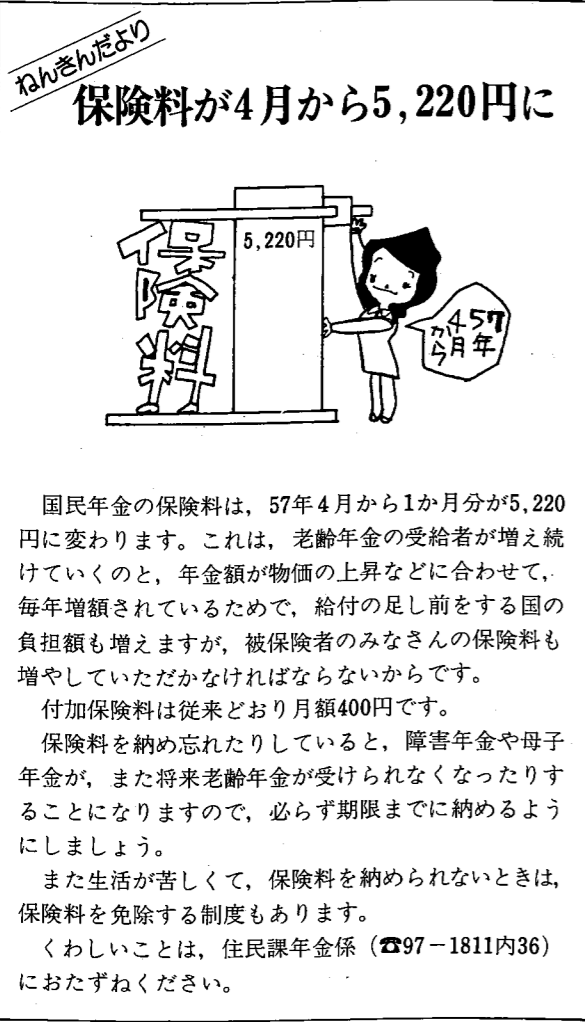 ねんきんだより
保険料が4月から5,220円に
保険料
5,220円
57年
4月
から
国民年金の保険料は，57年4月から1か月分が5,220
円に変わります。これは，老齢年金の受給者が増え続
けていくのと，年金額が物価の上昇などに合わせて，
毎年増額されているためで，給付の足し前をする国の
負担額も増えますが，被保険者のみなさんの保険料も
増やしていただかなければならないからです。
付加保険料は従来どおり月額400円です。
保険料を納め忘れたりしていると，障害年金や母子
年金が，また将来老齢年金が受けられなくなったりす
ることになりますので，必らず期限までに納めるよう
にしましょう。
また生活が苦しくて，保険料を納められないときは，
保険料を免除する制度もあります。
くわしいことは，住民課年金係（☎97－1811内36）
におたずねください。